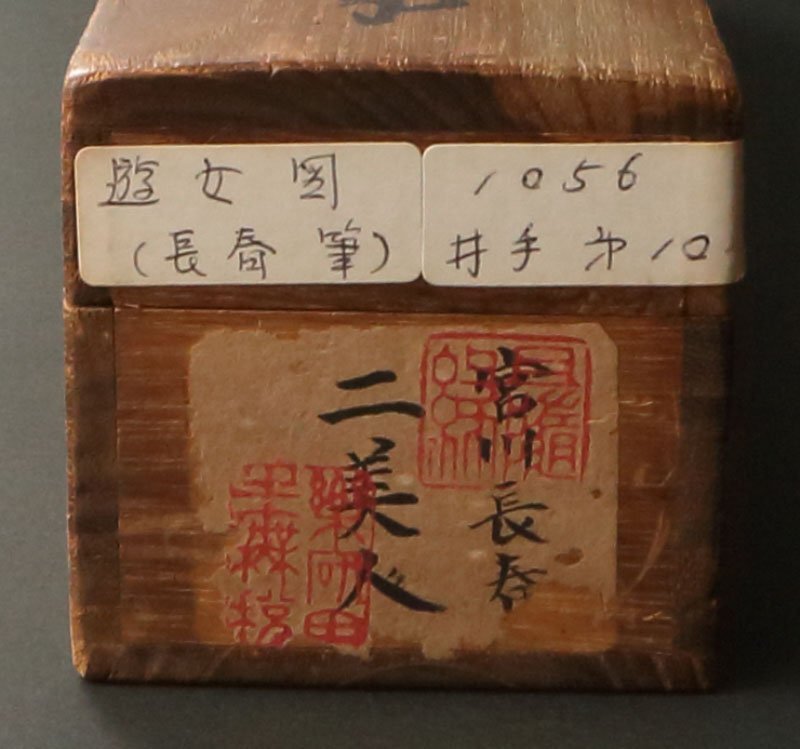 遊女図
(長春筆)
1056
井手 㐧10
宮川長春
二美人